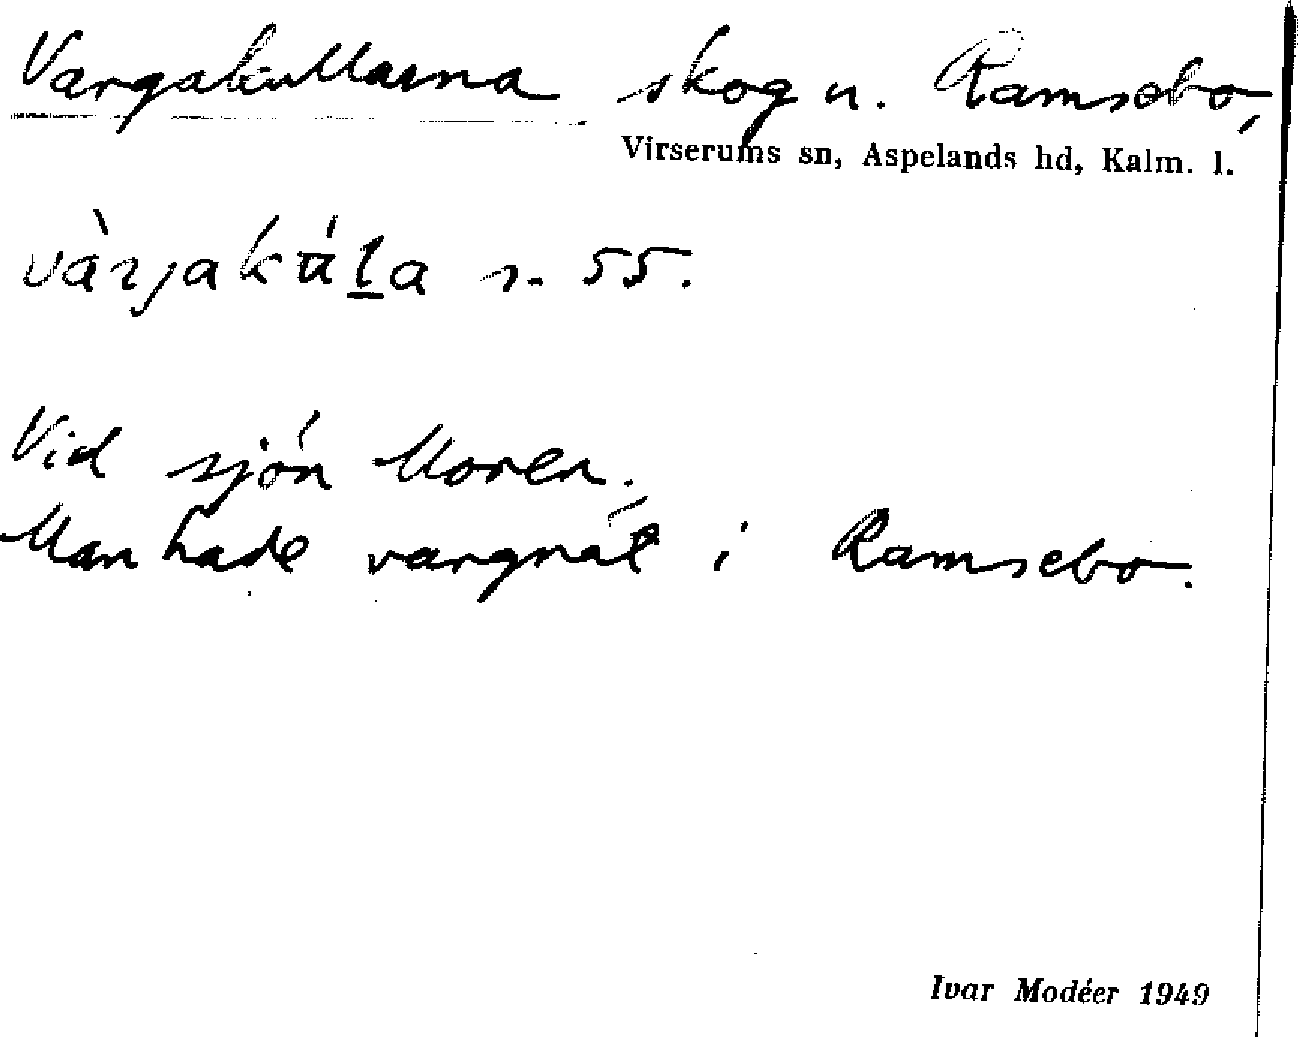 Vargakullarna skog n. Ramsebo,
Virserums sn, Aspelands hd, Kalm. l.
vàrjakúl̲a s. 55.
Vid sjön Moren.
Man hade vargnät i Ramsebo.
Ivar Modéer 1949